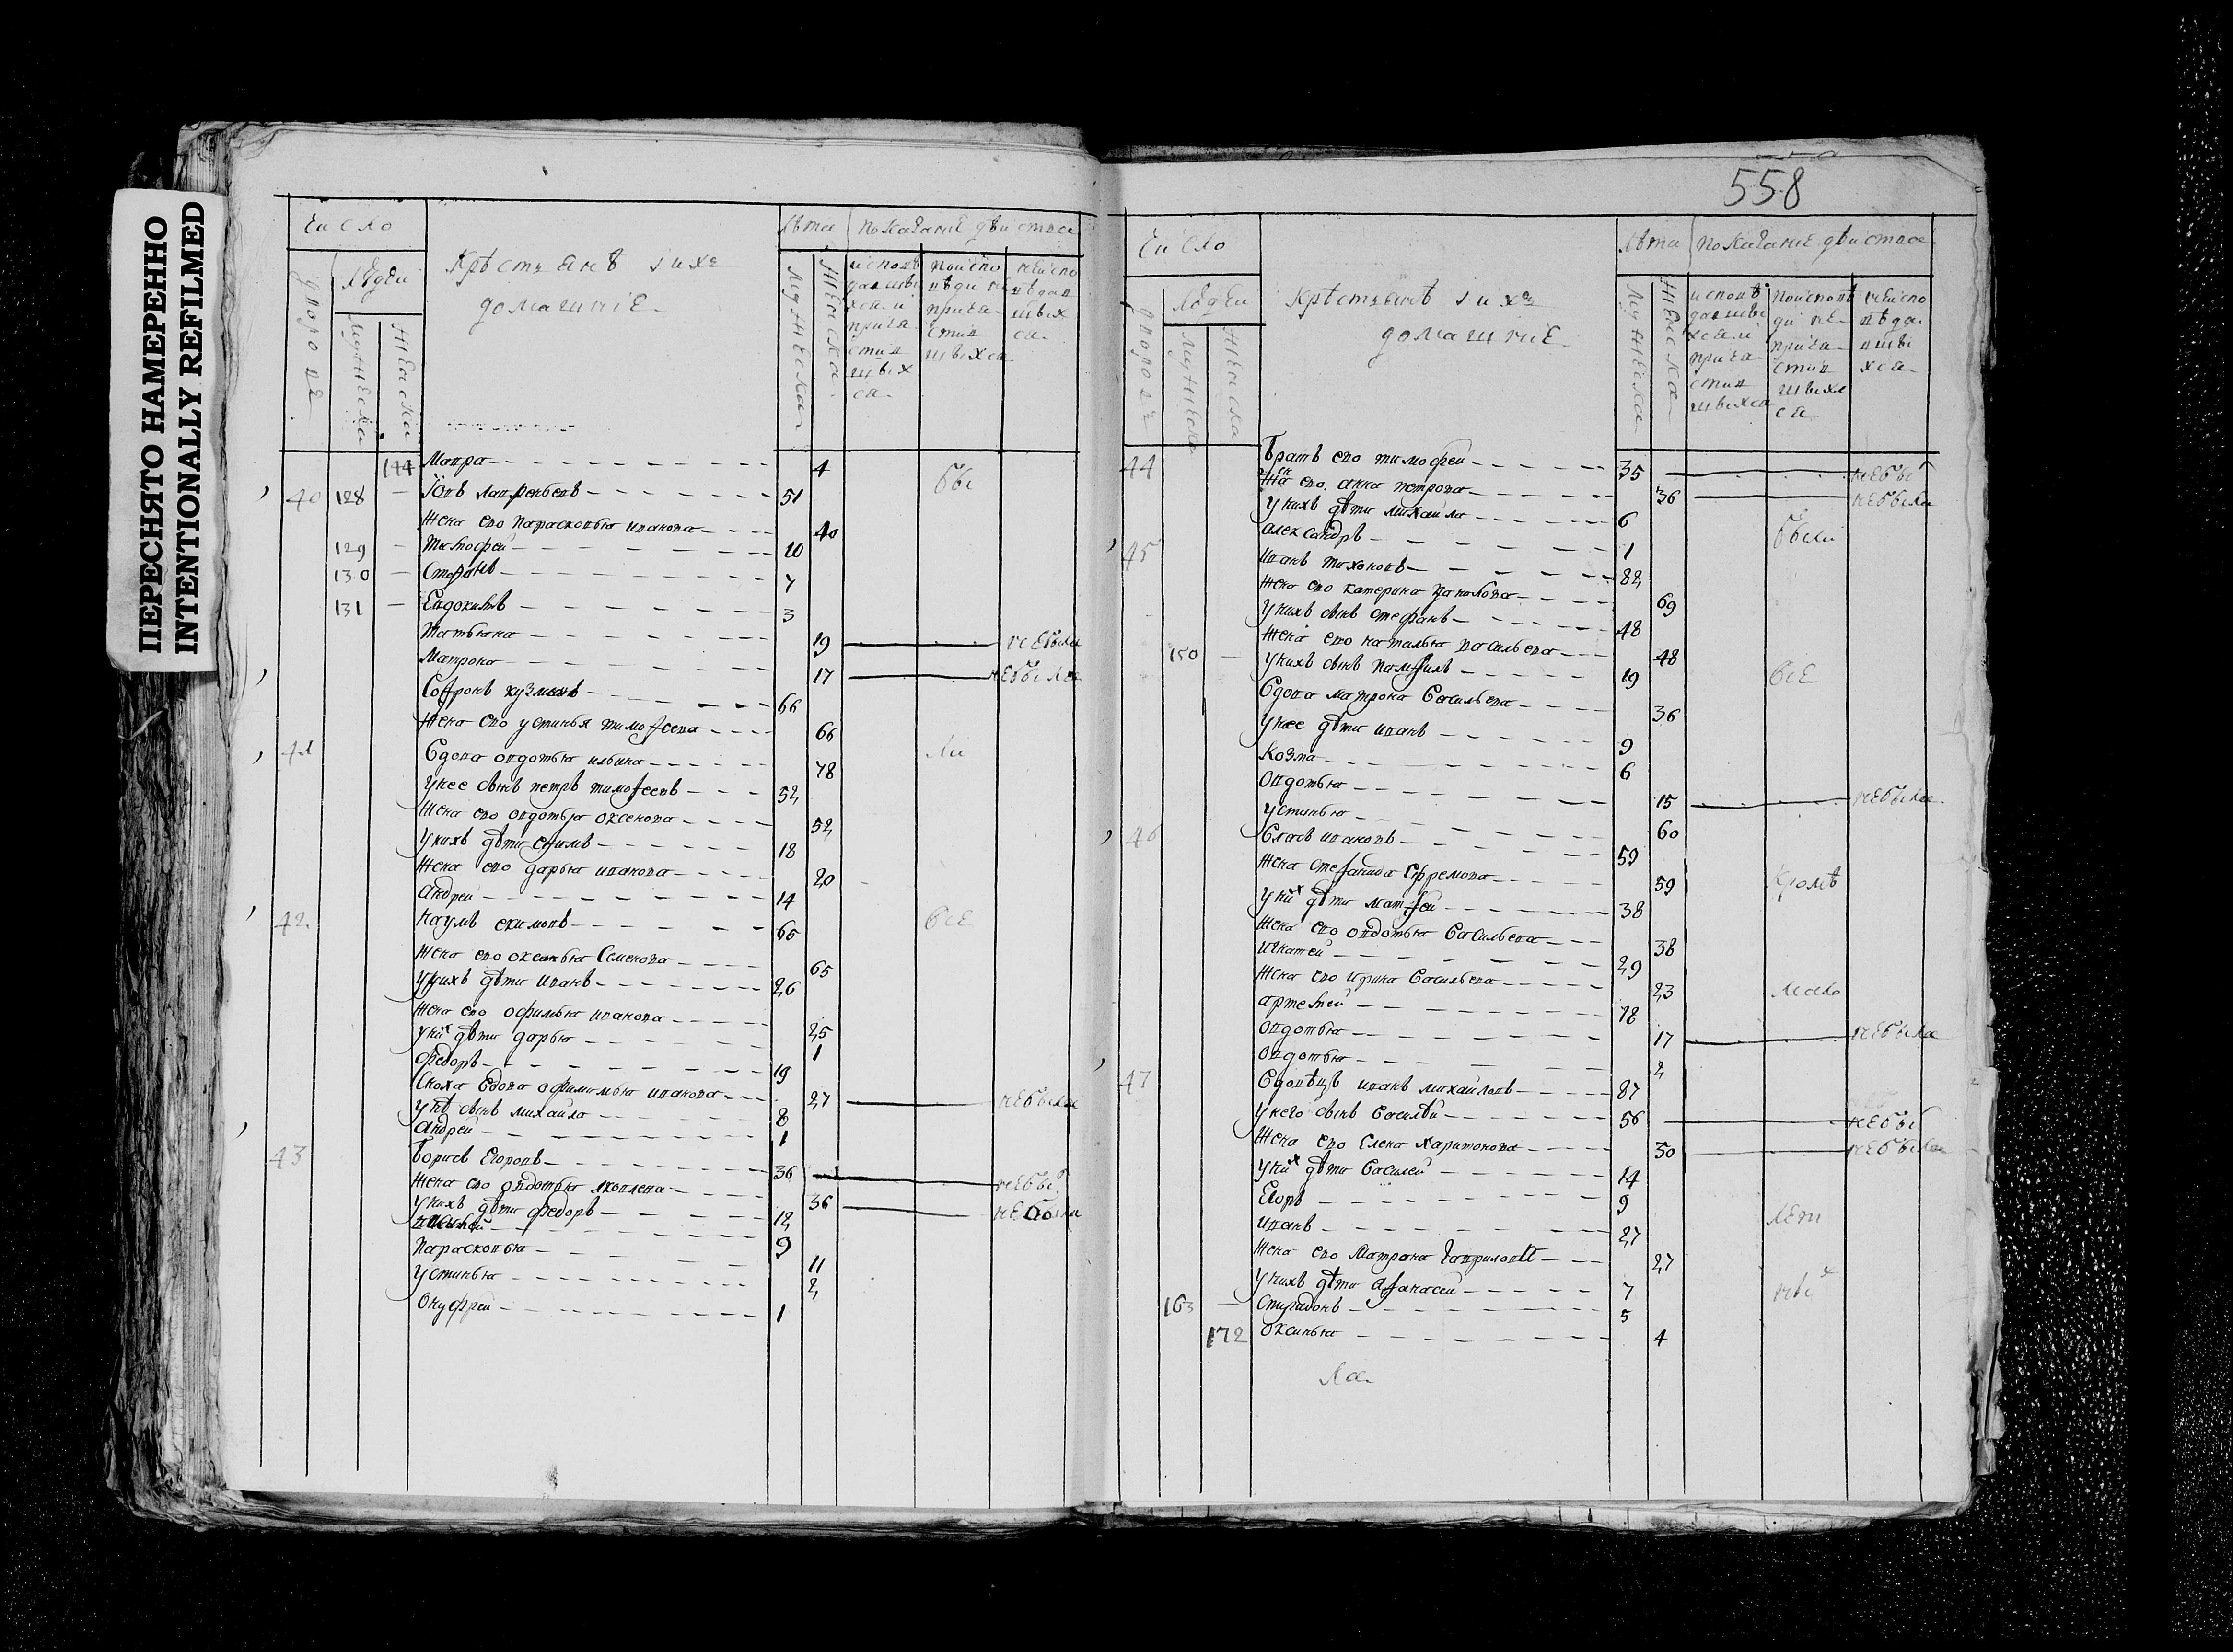 ПЕРЕСНЯТО НАМЕРЕННО
INTENTIONALLY REFILMED
Число
Лѣта
показание дѣиства
дворовъ
людеи
мужеска
женска
крѣстьянѣ и ихъ
домашние
мужеска
женска
исповѣ
давшы
хся и
прича
стив
шых
ся
поиспо
вѣди не
прича
стив
шыхся
неиспо
вѣдав
шых
ся
144 Мавра 4
40 128 Іовъ Лаврентьевъ 51 бы
жена ево Парасковья Иванова 40
129 Тимофей 10
130 Стефанъ 7
131 Евдокимъ 3
Татьяна 19 небыла
Матрона 17 небыла
Софронъ Кузминъ 66
жена ево Устинья Тимофеева 66
41 Вдова Овдотья Ильина 78 ли
у нее сынъ Петръ Тимофеевъ 52
жена ево Овдотья Оксенова 52
у нихъ дѣти Ефимъ 18
жена ево Дарья Иванова 20
Андреи 14
42 Наумъ Екимовъ 65 всѣ
жена ево Оксинья Семенова 65
у нихъ дѣти Иванъ 26
жена ево Офимья Иванова 25
у них дѣти Дарья 1
Федоръ 19
Сноха вдова Офимья Иванова 27 небыла
у нѣ сынъ Михаила 8
Андреи 1
43 Борисъ Егоровъ 36 небыл
жена ево Овдотья Яковлева 36 небыла
у нихъ дѣти Федоръ 12
9
Парасковья 11
Устинья 2
Онуфреи 1
558
Число
Лѣта
показание дѣиства
дворовъ
людеи
мужеска
женска
крѣстьянѣ и ихъ
домашние
мужеска
женска
исповѣ
давшы
хся и
прича
стив
шыхся
поисповѣ
ди не
прича
стив
шыхся
неиспо
вѣда
вшы
хся
44 братъ ево Тимофеи 35 небыл
жена ево Анна Петрова 36 небыла
у нихъ дѣти Михаила 6
Александръ 1 были
45 Иванъ Тихоновъ 82
жена ево Катерина 69
у нихъ сынъ Стефанъ 48
жена ево Наталья Васильева 48
150 у нихъ сынъ Памфилъ 19 всѣ
Вдова Матрона Васильева 36
у нее дѣти Иванъ 9
Козма 6
Овдотья 15 небыла
Устинья 60
46 Власъ Ивановъ 59
жена Стефанида Ефремова 59 кромѣ
у них дѣти Матфеи 38
жена ево Овдотья Васильева 38
Игнатеи 29
жена ево Ирина Васильева 23 мало
Артемеи 18
Овдотья 17 небыла
Овдотья 2
47 Вдовѣцъ Иванъ Михаиловъ 87
у него сынъ Василѣи 56 небыл
жена ево Елена Харитонова 50 небыла
у них дѣти Василеи 14
Егоръ 9
Иванъ 27 лет
жена ево Матрона Гаврилова 27
у нихъ дѣти Афанасеи 7 ных
163 Спиридонъ 5
172 Оксинья 4